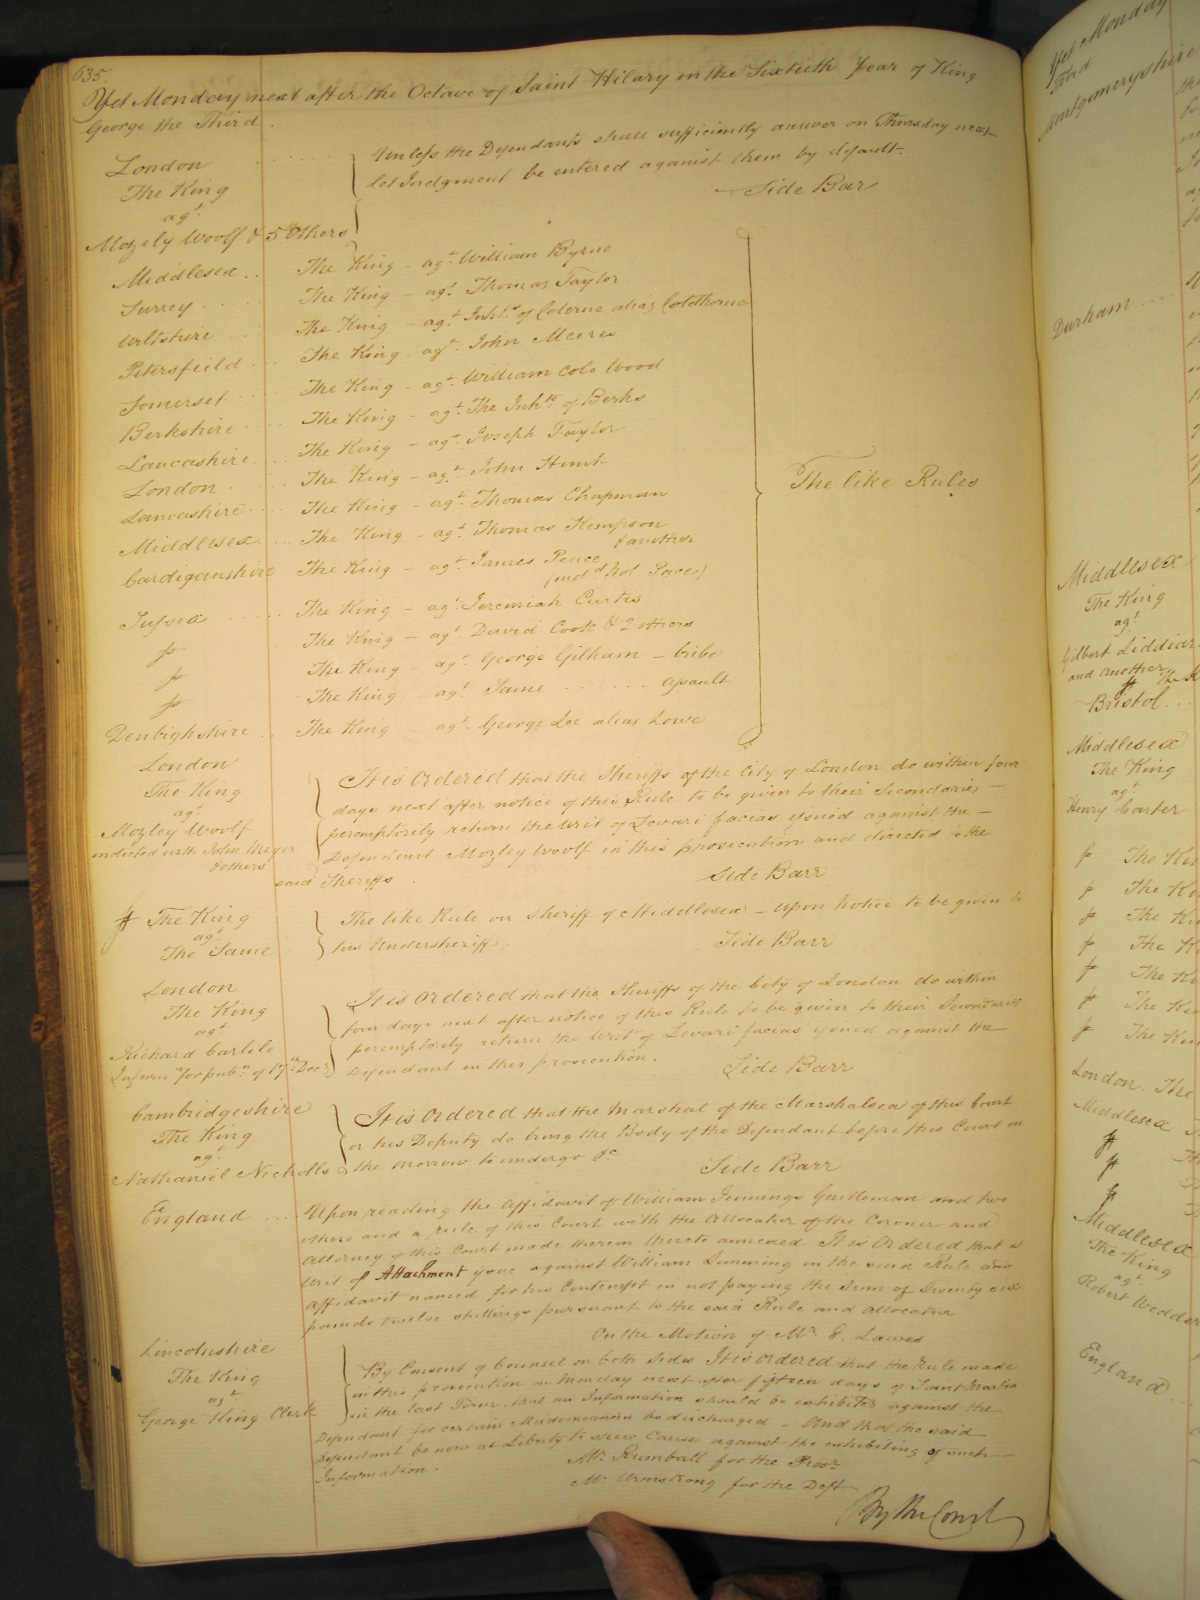 635.
Yet Monday next after the Octave of Saint Hilary in the Sixtieth Year of King
George the Third.
London
The King
agt.
Mozely Woolf & 5 Others
Unless the Defendants shall sufficiently answer on Thursday next
let Judgment be entered against them by default.
Side Bar
Middlesex .. The King - agt. William Byrne
Surrey .... The King - agt. Thomas Taylor
Wiltshire ... The King - agt. Inhts. of Colerne alias Coldthorne
Petersfield ... The King - agt. John Meeres
Somerset ... The King - agt. William Cole Wood
Berkshire .... The King - agt. The Inhts. of Berks
Lancashire ... The King - agt. Joseph Taylor
London .... The King - agt. John Hunt
Lancashire ... The King - agt. Thomas Chapman
Middlesex ... The King - agt. Thomas Kempson
& another
Cardiganshire The King - agt. James Peace
(indd. Not Pace)
Sussex ..... The King - agt. Jeremiah Curtis
fs The King - agt. David Cook & 2 others
fs The King - agt. George Gilham - bribe
fs The King - agt. Same ...... assault
Denbighshire .. The King - agt. George Lee alias Lowe
The like Rules
London
The King
agt.
Mozley Woolf
indicted with John Meyer
& others
It is Ordered that the Sheriffs of the City of London do within four
days next after notice of this Rule to be given to their Secondaries -
peremptorily return the writ of Levari facias issued against the -
Defendant Mozley Woolf in this prosecution and directed to the
said Sheriffs.
Side Barr
fs The King
agt.
The Same
The like Rule on Sheriff of Middlesex - upon Notice to be given to
his Undersheriff
Side Barr
London
The King
agt.
Richard Carlile
Inform "for pubn. of 17th Decr.
It is Ordered that the Sheriffs of the City of London do within
four days next after notice of this Rule to be given to their Secondaries
peremptorily return the Writ of Levari facias issued against the
Defendant in this prosecution.
Side Barr
Cambridgeshire
The King
agt.
Nathaniel Nicholls
It is Ordered that the Marshal of the Marshalsea of this Court
or his Deputy do bring the Body of the Defendant before this Court on
the Morrow to undergo &c
Side Barr
England .... Upon reading the Affidavit of William Jennings Gentleman and two
others and a rule of this Court with the Allocatur of the Coroner and
Attorney of this Court made thereon thereto annexed It is Ordered that a
Writ of Attachment issue against William Limming in the said Rule and
Affidavit named for his Contempt in not paying the Sum of Twenty six
pounds twelve shillings pursuant to the said Rule and allocatur
On the Motion of Mr. E. Lawes
Lincolnshire
The King
agt
George King Clerk
By Consent of Counsel on both sides It is ordered that the Rule made
in this prosecution on Monday next after fifteen days of Saint Martin
in the last Term, that an Information should be exhibited against the
Defendant for certain Misdemeanors be discharged - And that the said
Defendant be now at Liberty to shew Cause against the exhibiting of such
Information.
Mr. Rumball for the Prosr.
Mr. Armstrong for the Deft
By the Court
Yet Monday
Third
Montgomeryshire
Durham ....
Middlesex
The King
agt.
Gilbert Liddiar
and another
fs The K
Bristol ...
Middlesex
The King
agt.
Henry Carter
fs The Kin
fs The Kin
fs The Kin
fs The K
fs The Ki
fs The Kin
fs The Kin
London. The
Middlesex
fs
fs
fs
Middlesex
The King
agt.
Robert Wedder
England